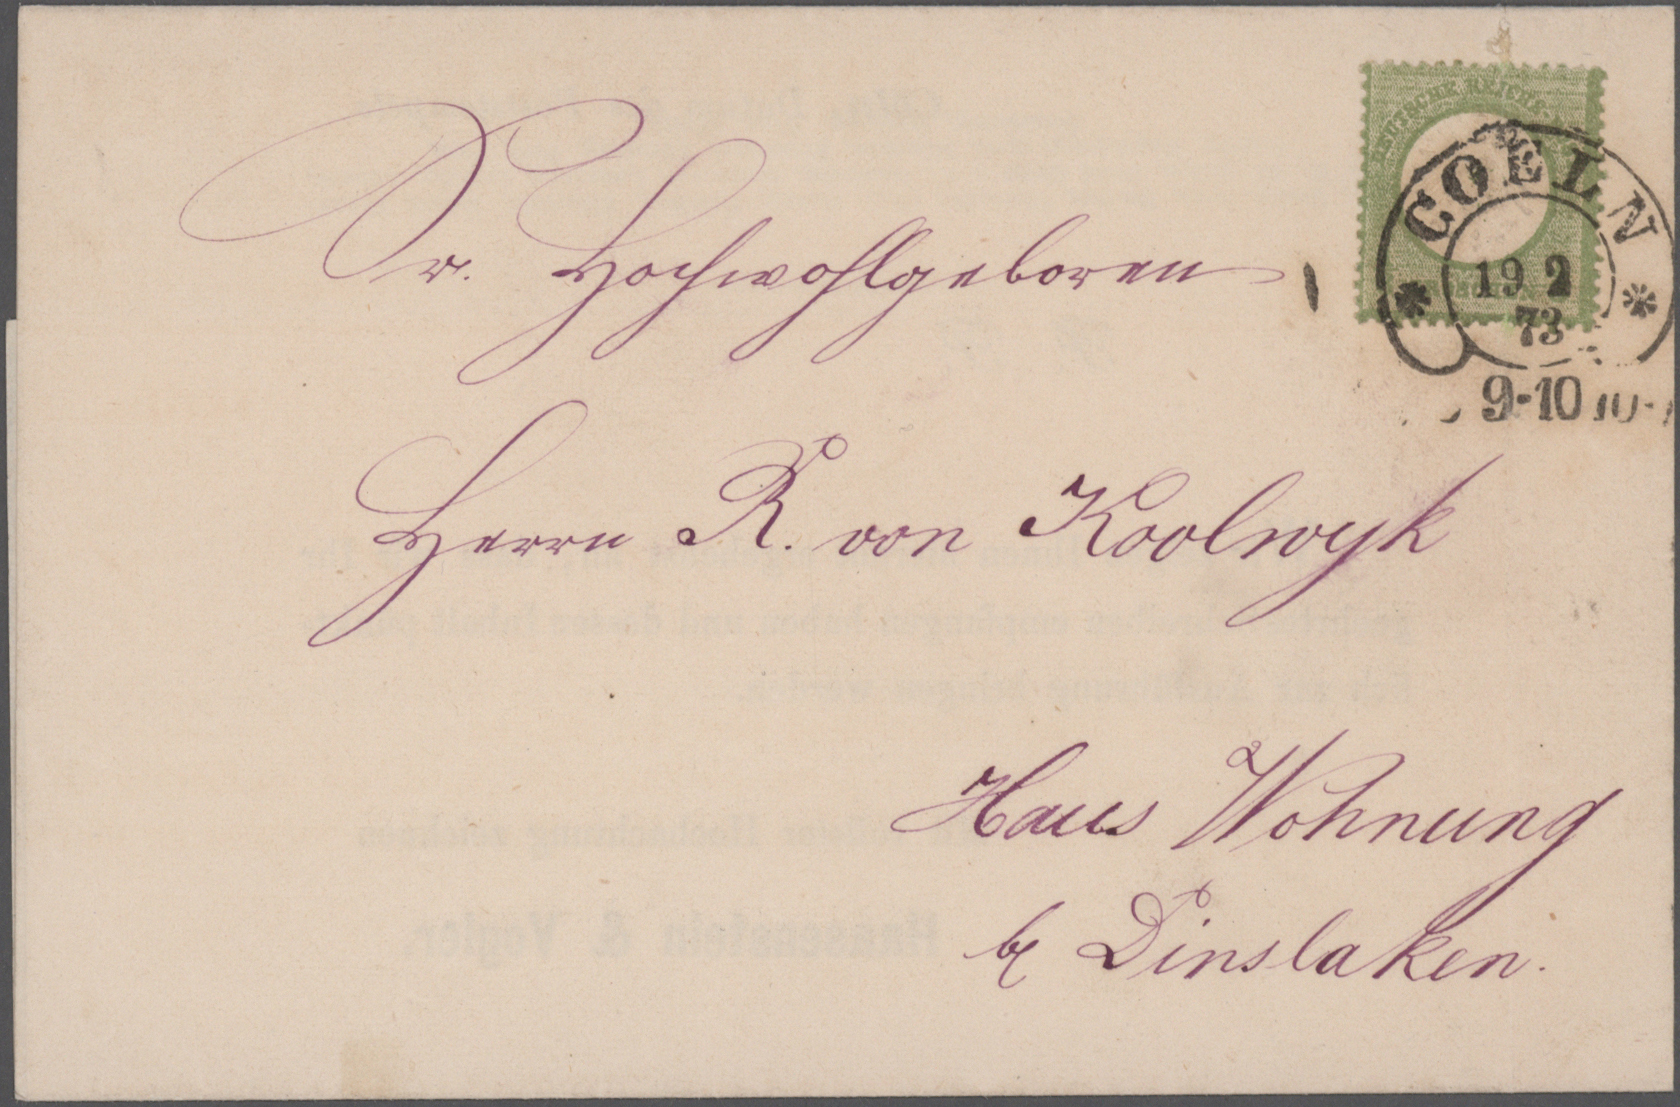 DEUTSCHE REICHS-
COELN
19 2
73
9-10 10-
Sr. Hochwohlgeboren
Herrn R. von Koolwyk
Haus Wohnung
b/ Dinslaken.